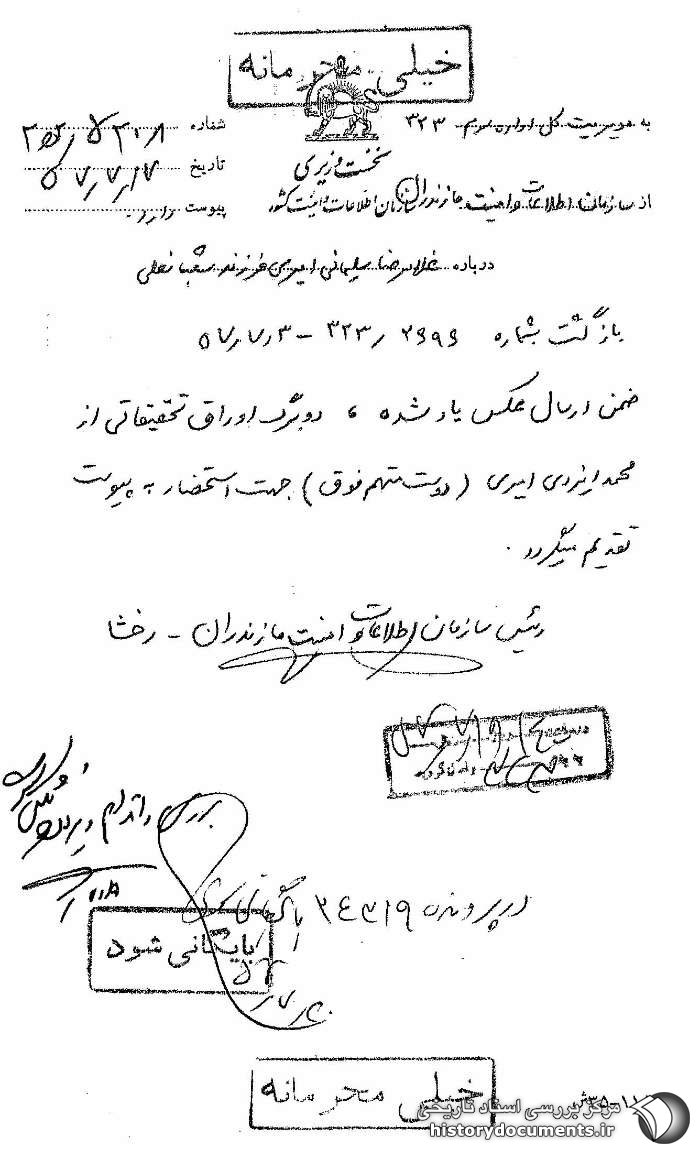 خیلی محرمانه
به مدیریت کل اداره سوم ۳۲۳
شماره
نخست وزیری
تاریخ ۵۷/۷/۱۷
از سازمان اطلاعات و امنیت مازندران
سازمان اطلاعات و امنیت کشور
پیوست دارد
درباره غلامرضا سلیمانی امیری فرزند شعبانعلی
بازگشت بشماره ۲۶۹۶ / ۳۲۳ – ۵۷/۷/۳
ضمن ارسال عکس یاد شده ، دو برگ اوراق تحقیقاتی از
محمد ایزدی امیری (دوست متهم فوق) جهت استحضار به پیوست
تقدیم میگردد .
رئیس سازمان اطلاعات و امنیت مازندران – رخشا
بررسی و اقدام
در پرونده ۲۴۳۱۹ بایگانی
بایگانی شود
خیلی محرمانه
مرکز بررسی اسناد تاریخی
historydocuments.ir